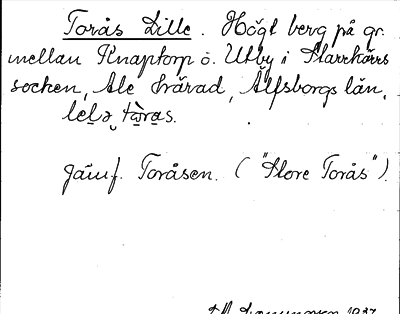 Torås Lille. Högt berg på gr.
mellan Knaptorp o. Utby i Starrkärrs
socken, Ale härad, Älfsborgs län.
Jämf. Toråsen. ("Store Torås").
1937